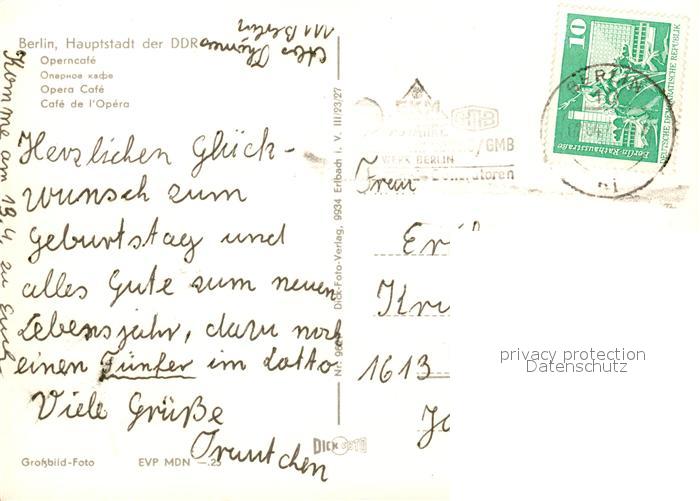 Berlin, Hauptstadt der DDR
Operncafé
Оперное кафе
Opera Café
Café de l'Opéra
111 Berlin
Komme am 19.4. zu Euch
Herzlichen Glück-
wunsch zum
Geburtstag und
alles Gute zum neuen
Lebensjahr, dazu noch
einen Fünfer im Lotto
Viele Grüße
Trautchen
Großbild-Foto EVP MDN —.25
Dick-Foto-Verlag, 9934 Erlbach i. V. III/23/27
DICK FOTO
/GMB
WERK BERLIN
BERLIN
10
Berlin-Rathausstraße
DEUTSCHE DEMOKRATISCHE REPUBLIK
Frau
Er
Kru
1613
privacy protection
Datenschutz